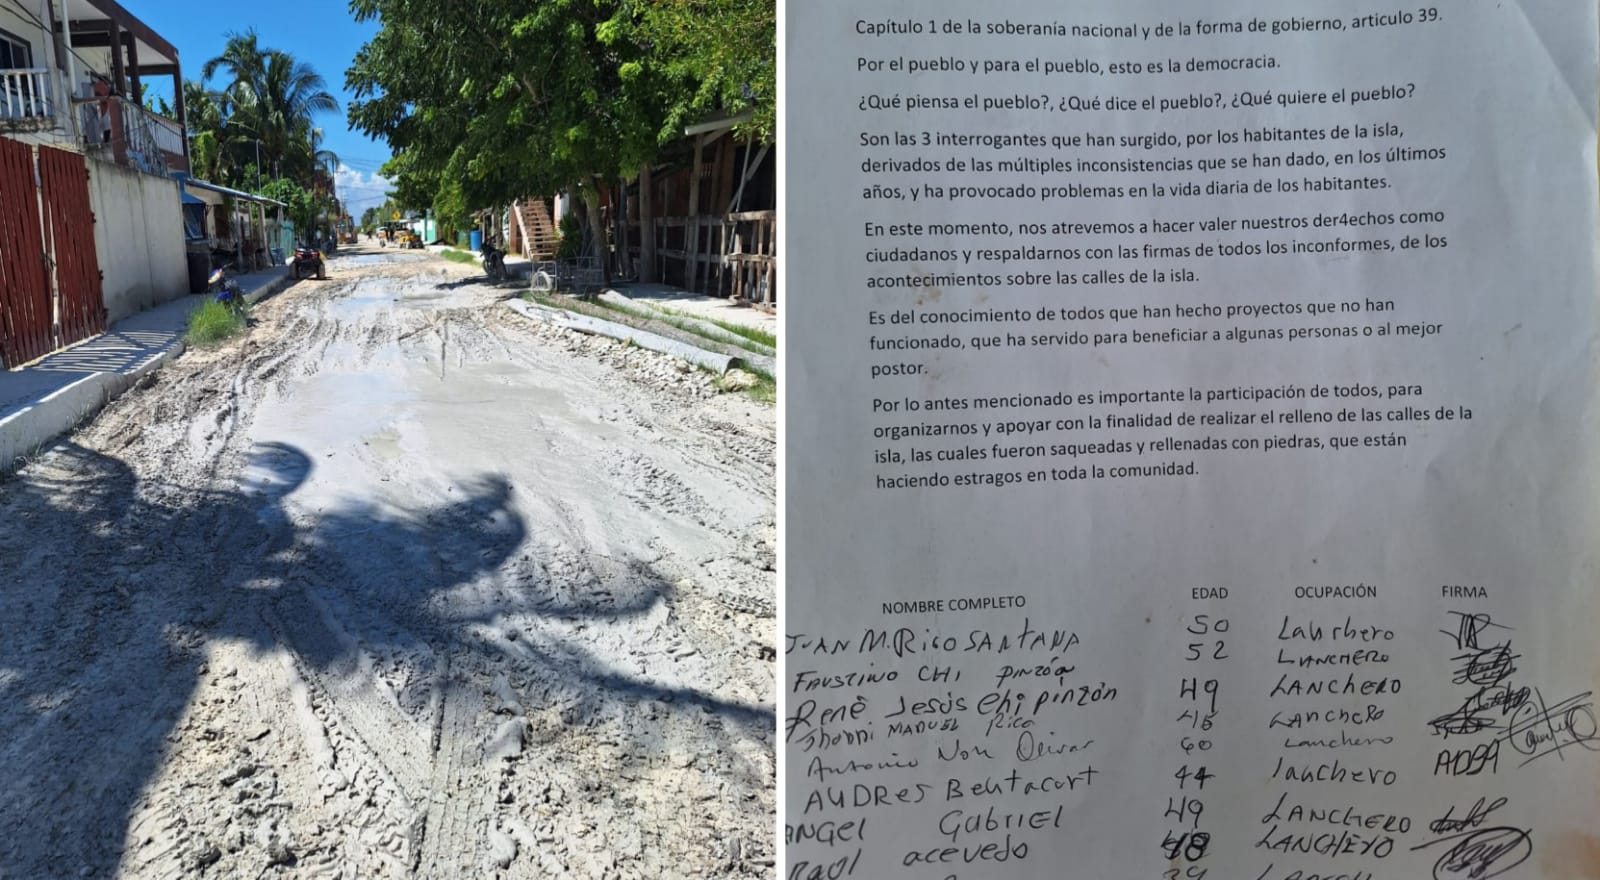 Capítulo 1 de la soberanía nacional y de la forma de gobierno, articulo 39.
Por el pueblo y para el pueblo, esto es la democracia.
¿Qué piensa el pueblo?, ¿Qué dice el pueblo?, ¿Qué quiere el pueblo?
Son las 3 interrogantes que han surgido, por los habitantes de la isla,
derivados de las múltiples inconsistencias que se han dado, en los últimos
años, y ha provocado problemas en la vida diaria de los habitantes.
En este momento, nos atrevemos a hacer valer nuestros der4echos como
ciudadanos y respaldarnos con las firmas de todos los inconformes, de los
acontecimientos sobre las calles de la isla.
Es del conocimiento de todos que han hecho proyectos que no han
funcionado, que ha servido para beneficiar a algunas personas o al mejor
postor.
Por lo antes mencionado es importante la participación de todos, para
organizarnos y apoyar con la finalidad de realizar el relleno de las calles de la
isla, las cuales fueron saqueadas y rellenadas con piedras, que están
haciendo estragos en toda la comunidad.
NOMBRE COMPLETO EDAD OCUPACIÓN FIRMA
JUAN M. RICO SANTANA 50 Lanchero
FAUSTINO CHI PINZÓN 52 LANCHERO
René Jesús Chi pinzón 49 LANCHERO
MANUEL Rico LANCHERO
Antonio Non 60 Lanchero
AUDRES Bentacort 44 lanchero
ANGEL GabriEL 49 LANCHERO
RAUL acevedo 48 LANCHERO